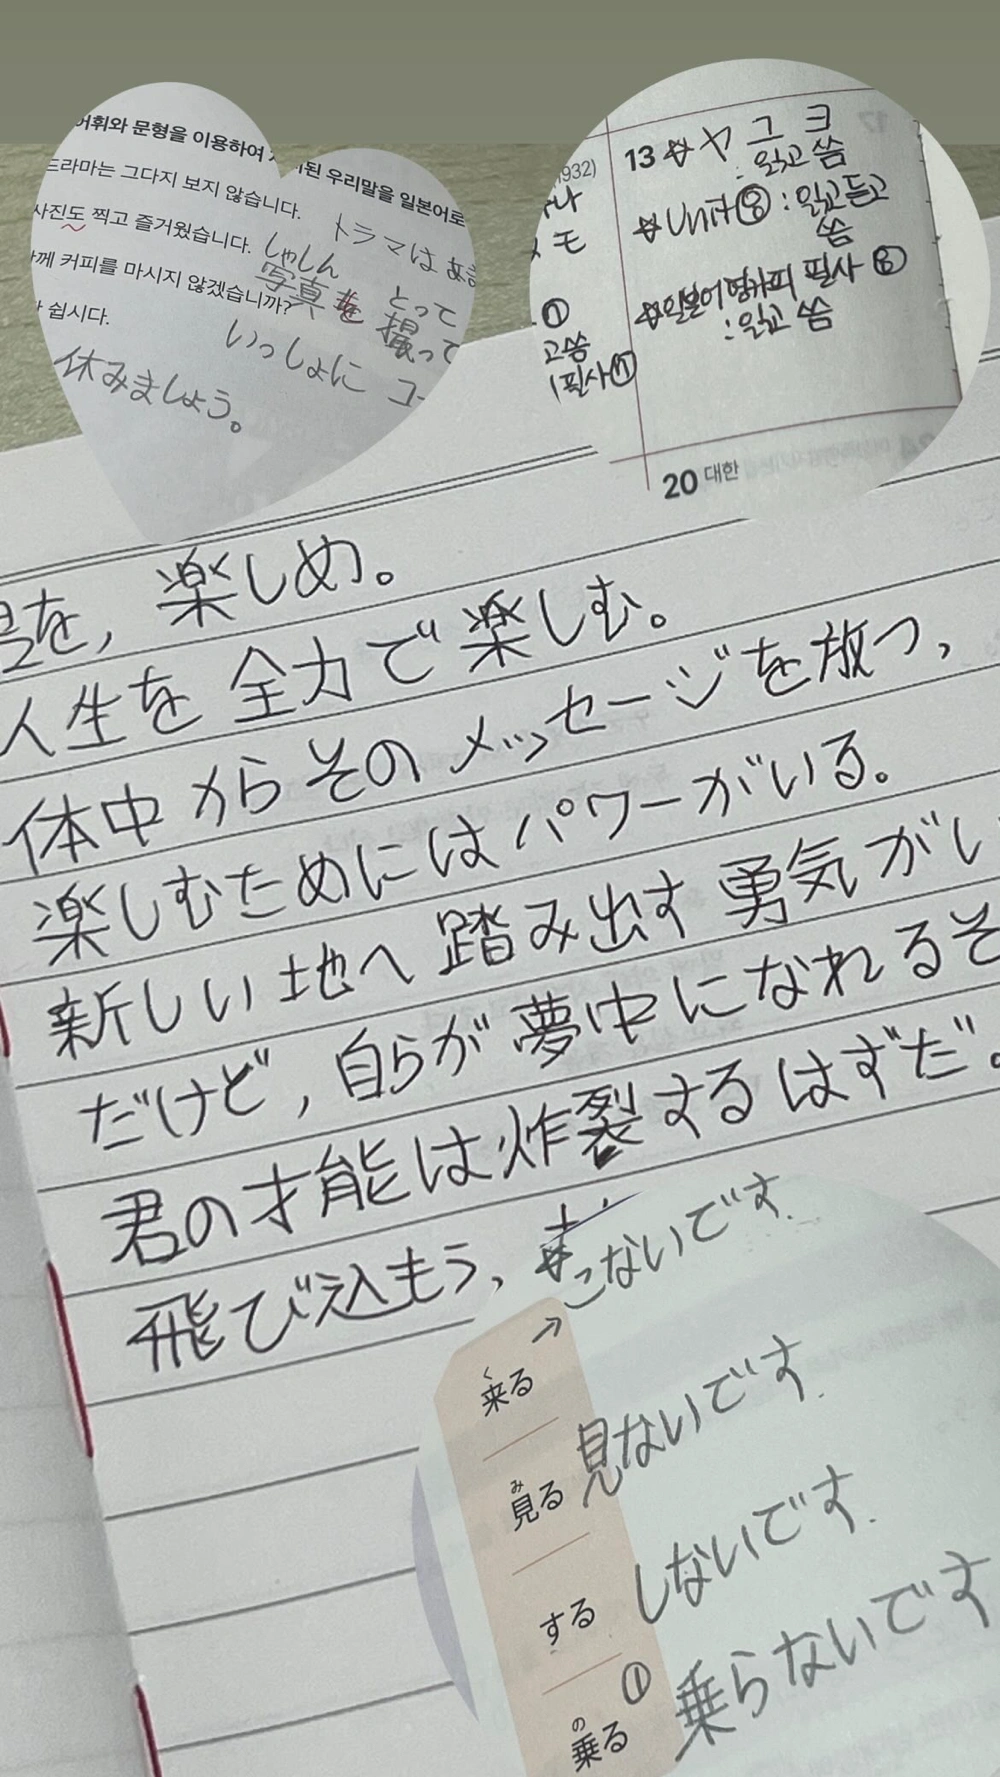 어휘와 문형을 이용하여
된 우리말을 일본어로
드라마는 그다지 보지 않습니다.
トラマは
사진도 찍고 즐거웠습니다.
しゃしん とって
写真を 撮って
께 커피를 마시지 않겠습니까?
いっしょに コー
쉽시다.
休みましょう。
1932)
モ
⑦
고씀
필사⑦
13 ヤ ユ ヨ
: 읽고 씀
Unit⑧ : 읽고 듣고
씀
일본어 명카피 필사 ⑧
: 읽고 씀
17
20 대한
を, 楽しめ。
人生を 全力で 楽しむ。
体中からそのメッセージを放つ,
楽しむためにはパワーがいる。
新しい地へ踏み出す 勇気がい
だけど, 自らが夢中になれるそ
君の才能は炸裂するはずだ。
飛び込もう,
こないです.
来る
く
見ないです.
見る
み
しないです.
する
① 乗らないです
乗る
の